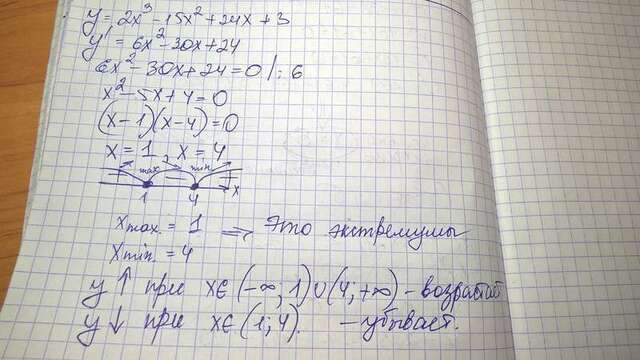 y = 2x³ - 15x² + 24x + 3
y' = 6x² - 30x + 24
6x² - 30x + 24 = 0 /: 6
x² - 5x + 4 = 0
(x - 1)(x - 4) = 0
x = 1, x = 4
+ max - min +
1 4 x
xmax. = 1 => Это экстремумы
xmin. = 4
y ↑ при x∈(-∞; 1)∪(4; +∞) - возрастает
y ↓ при x∈(1; 4). - убывает.